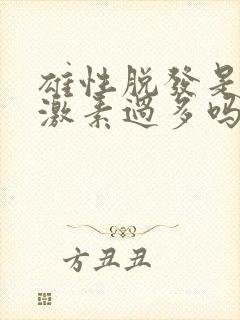 雄性脱發是
激素過多吗
方丑丑